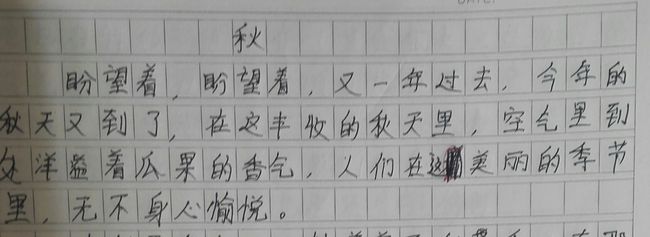 秋
盼望着，盼望着，又一年过去，今年的
秋天又到了，在这丰收的秋天里，空气里到
处洋溢着瓜果的香气，人们在这美丽的季节
里，无不身心愉悦。